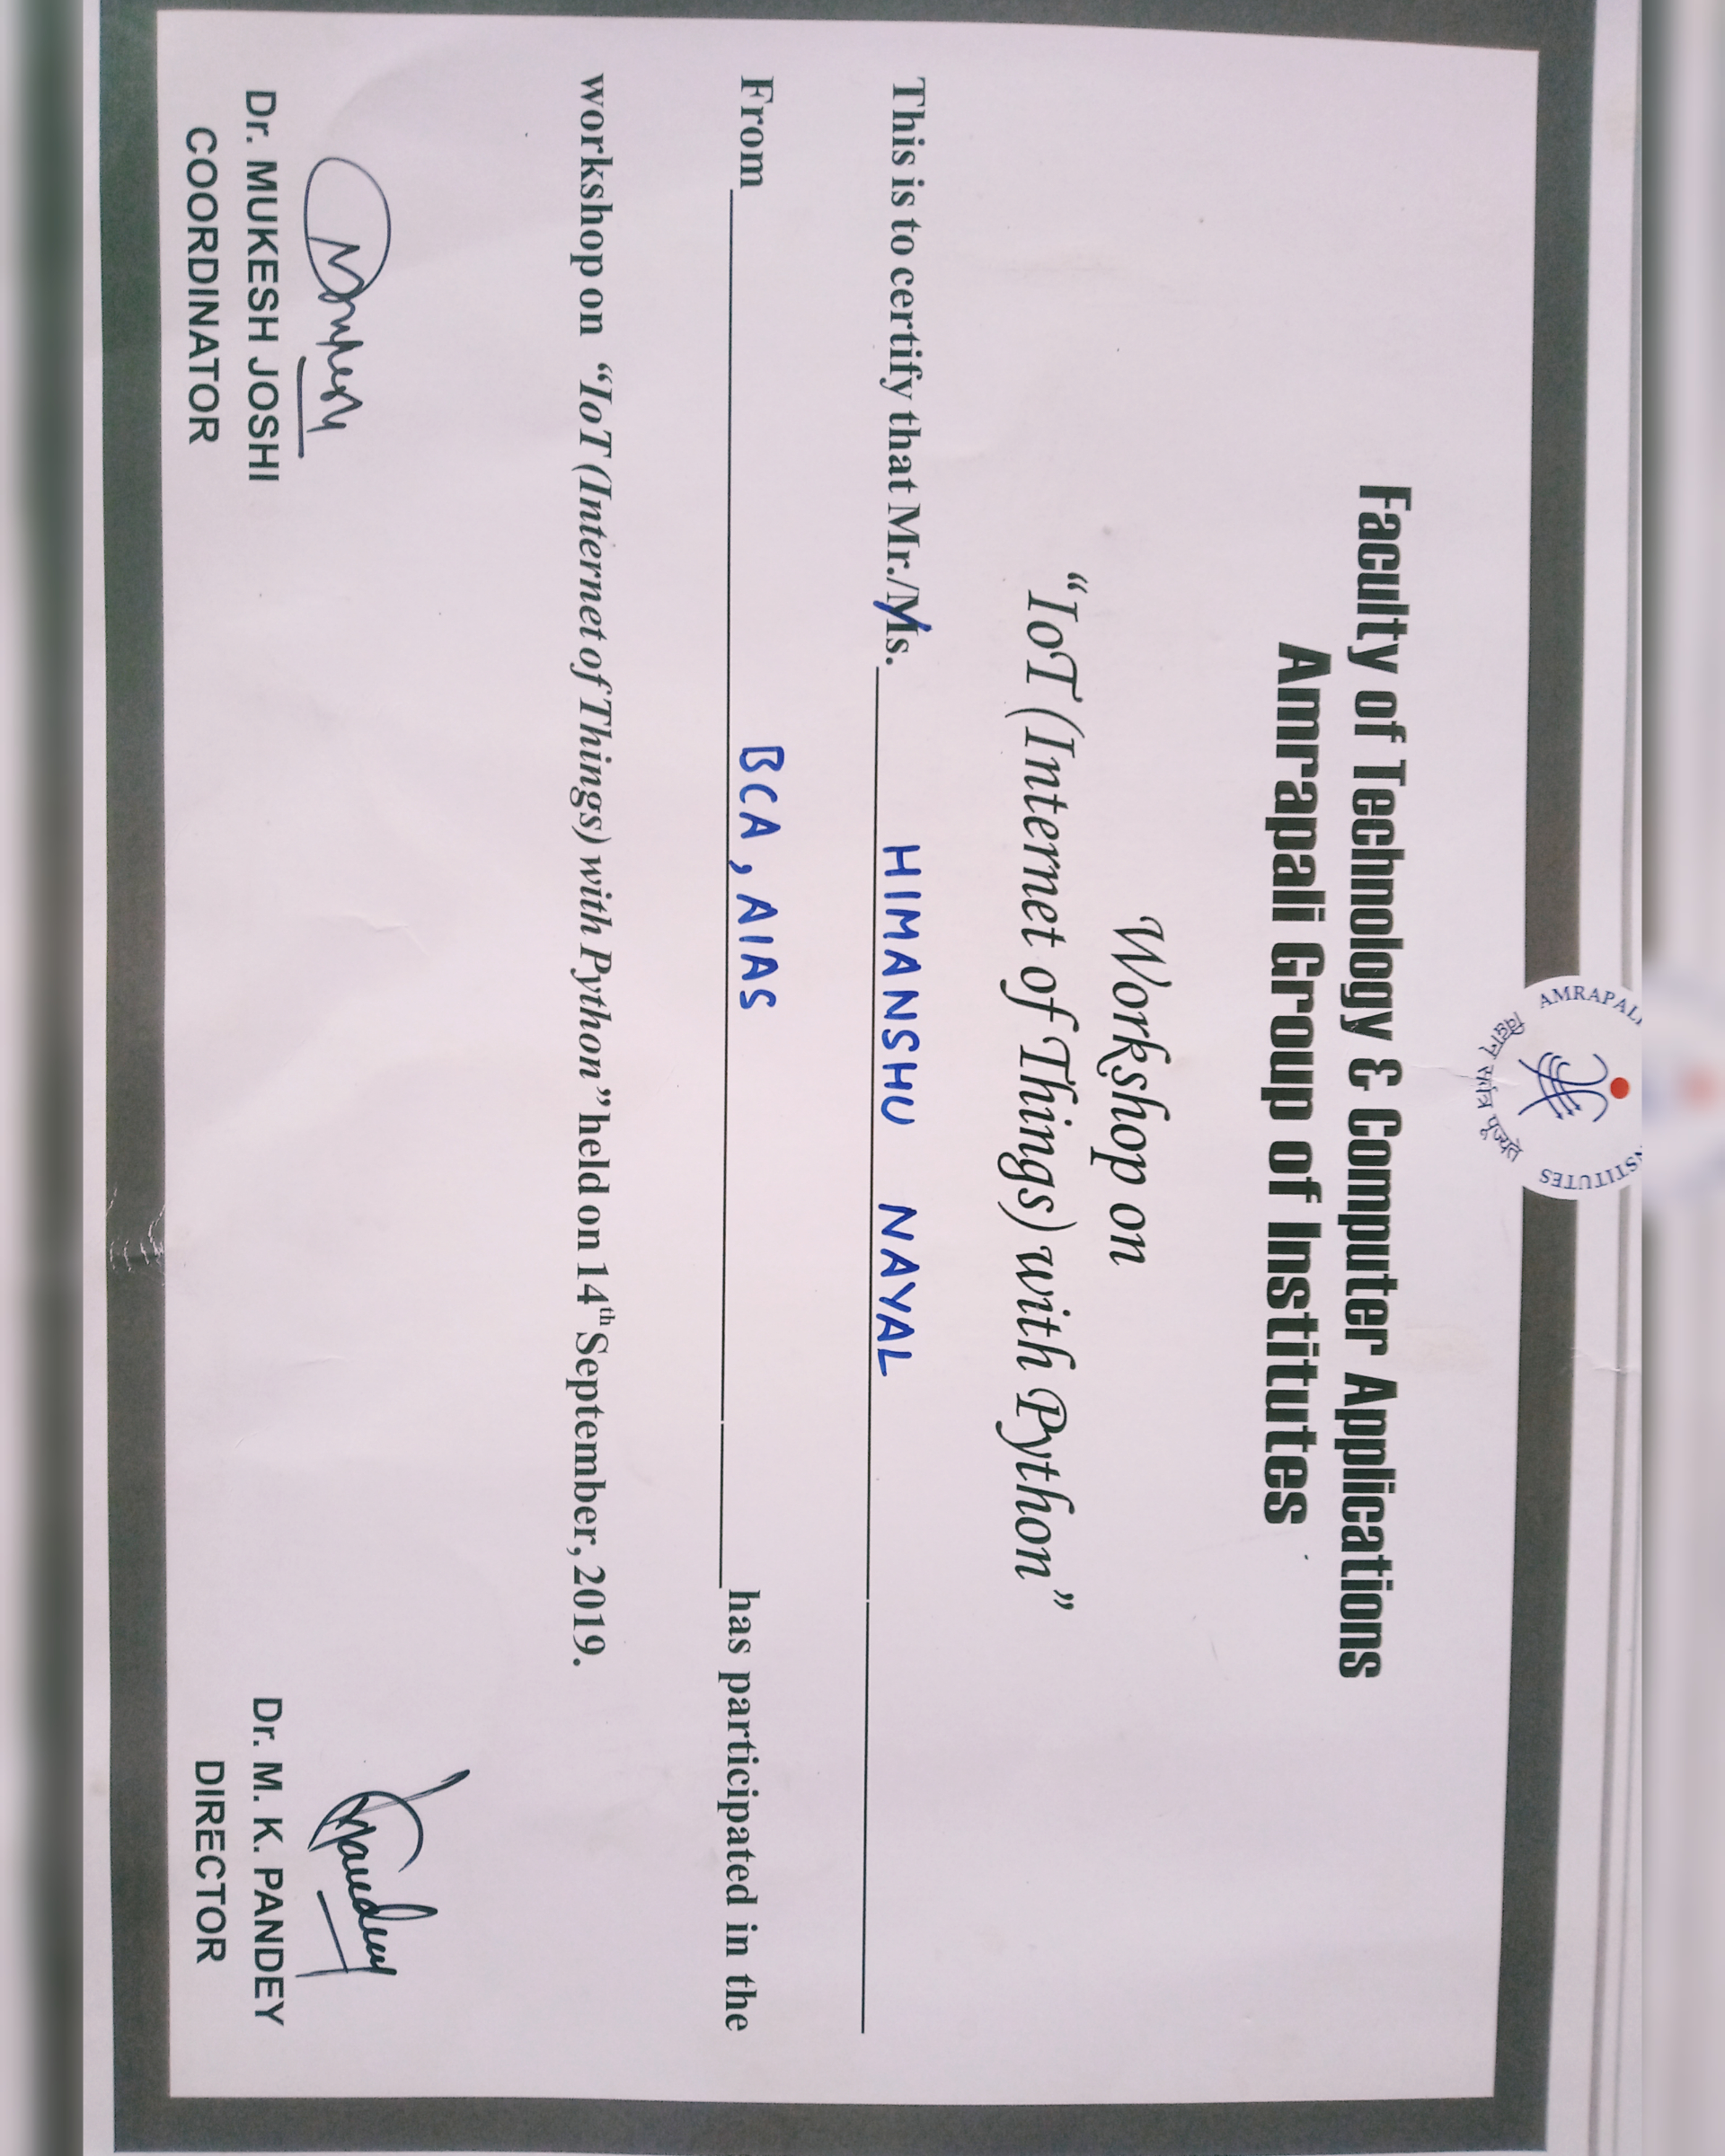 AMRAPALI INSTITUTES
विद्वान् सर्वत्र पूज्यते
Faculty of Technology & Computer Applications
Amrapali Group of Institutes
Workshop on
“IoT (Internet of Things) with Python”
This is to certify that Mr./Ms. HIMANSHU NAYAL
From BCA, AIAS has participated in the
workshop on “IoT (Internet of Things) with Python” held on 14th September, 2019.
Mukesh
Pandey
Dr. MUKESH JOSHI
COORDINATOR
Dr. M. K. PANDEY
DIRECTOR